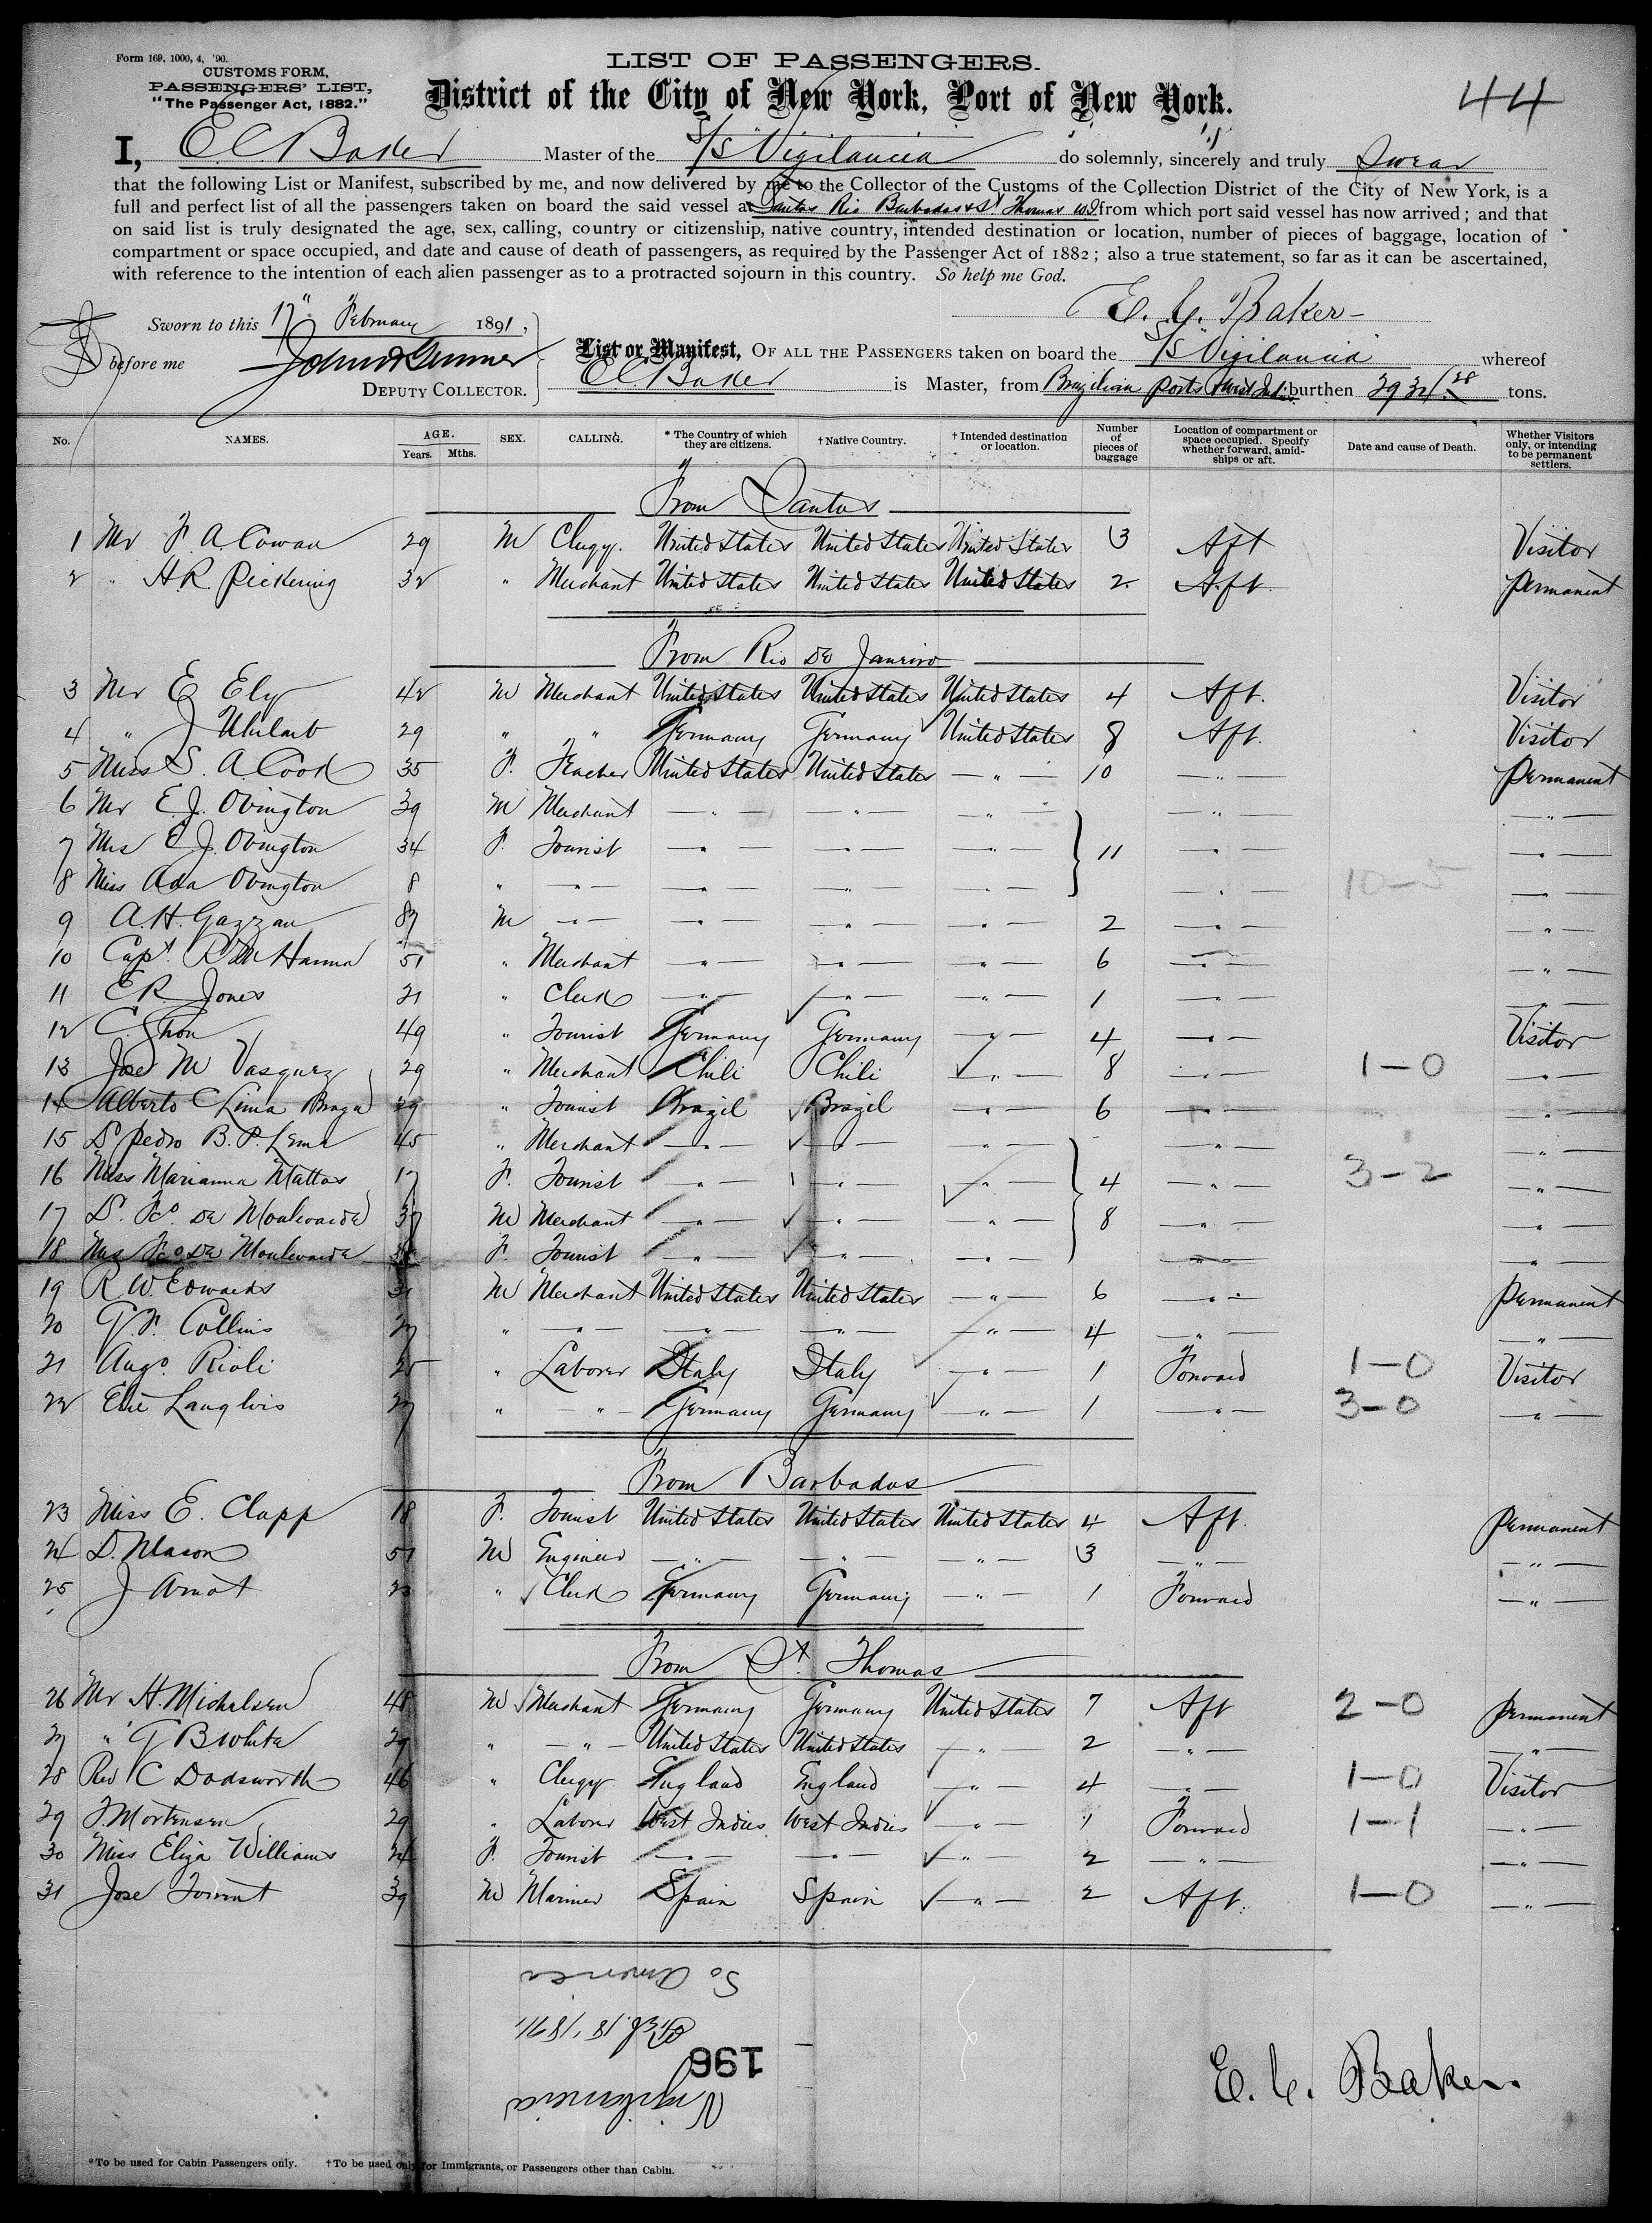 Form 169, 1000, 4, '90.
CUSTOMS FORM,
PASSENGERS' LIST,
"The Passenger Act, 1882."
LIST OF PASSENGERS.
District of the City of New York, Port of New York.
44
I, E C Baker Master of the S/S Vigilancia do solemnly, sincerely and truly Swear
that the following List or Manifest, subscribed by me, and now delivered by me to the Collector of the Customs of the Collection District of the City of New York, is a
full and perfect list of all the passengers taken on board the said vessel at Santos Rio Barbados & St Thomas W I from which port said vessel has now arrived; and that
on said list is truly designated the age, sex, calling, country or citizenship, native country, intended destination or location, number of pieces of baggage, location of
compartment or space occupied, and date and cause of death of passengers, as required by the Passenger Act of 1882; also a true statement, so far as it can be ascertained,
with reference to the intention of each alien passenger as to a protracted sojourn in this country. So help me God.
E. C. Baker
Sworn to this 17" February 1891,
before me
DEPUTY COLLECTOR.
List or Manifest, OF ALL THE PASSENGERS taken on board the S/S Vigilancia whereof
E C Baker is Master, from Brazilian ports & West Indies burthen tons.
No. NAMES. AGE. Years. Mths. SEX. CALLING. * The Country of which they are citizens. † Native Country. † Intended destination or location. Number of pieces of baggage Location of compartment or space occupied. Specify whether forward, amidships or aft. Date and cause of Death. Whether Visitors only, or intending to be permanent settlers.
From Santos
1 Mr F. A. Cowan 29 M Clergy. United States United States United States 3 Aft Visitor
2 " H R Pickering 32 " Merchant United States United States United States 2 Aft Permanent
From Rio de Janeiro
3 Mr E Ely 42 M Merchant United States United States United States 4 Aft. Visitor
4 " J 29 " " Germany Germany United States 8 Aft. Visitor
5 Miss S. A. Cook 35 F. Teacher United States United States " 10 " Permanent
6 Mr E. J. Ovington 39 M Merchant " " " " "
7 Mrs E J. Ovington 34 F. Tourist " " " 11 " "
8 Miss Ada Ovington 8 " " " " " " 10-5 "
9 A. H. Gazzan 37 M " " " " 2 " "
10 Capt. R M Hanna 51 " Merchant " " " 6 " "
11 E R Jones 21 " Clerk " " " 1 " "
12 C. Thon 49 " Tourist Germany Germany " 4 " Visitor
13 José M Vasquez 29 " Merchant Chili Chili " 8 " 1-0 "
14 Alberto C Lima Braga 29 " Tourist Brazil Brazil " 6 " "
15 Dr Pedro B. P. Lema 45 " Merchant " " " " "
16 Miss Marianna Mattos 17 F. Tourist " " " 4 " 3-2 "
17 Dr. Fco. de 37 M Merchant " " " 8 " "
18 Mrs Fco de F. Tourist " " " " "
19 R W. Edwards 31 M Merchant United States United States " 6 " Permanent
20 G. F. Collins 27 " " " " " 4 " "
21 Augo. Rioli 25 " Laborer Italy Italy " 1 Forward 1-0 Visitor
22 Elie Langlois 27 " " Germany Germany " 1 " 3-0 "
From Barbados
23 Miss E. Clapp 18 F. Tourist United States United States United States 4 Aft. Permanent
24 D. Mason 51 M Engineer " " " 3 " "
25 J Arnot 23 " Clerk Germany Germany " 1 Forward "
From St. Thomas
26 Mr H. Michelsen 48 M Merchant Germany Germany United States 7 Aft 2-0 Permanent
27 " G B White 29 " " United States United States " 2 " "
28 Rev C Dodsworth 46 " Clergy England England " 4 " 1-0 Visitor
29 J. Mortensen 29 " Laborer West Indies West Indies " 1 Forward 1-1 "
30 Miss Eliza Williams 24 F. Tourist " " " 2 " "
31 Jose 39 M Mariner Spain Spain " 2 Aft. 1-0 "
Vigilancia
196
Feb. 18 1891,
So America
E. C. Baker
*To be used for Cabin Passengers only. †To be used only for Immigrants, or Passengers other than Cabin.